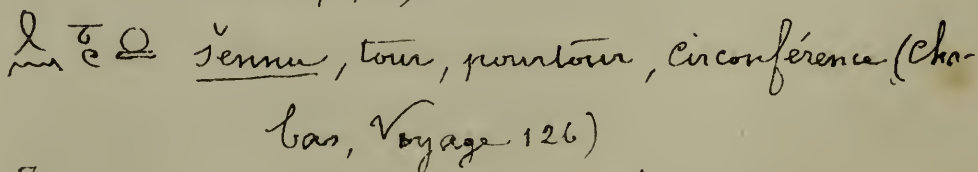 šennu, tour, pourtour, circonférence (Cha-
bas, Voyage 126)